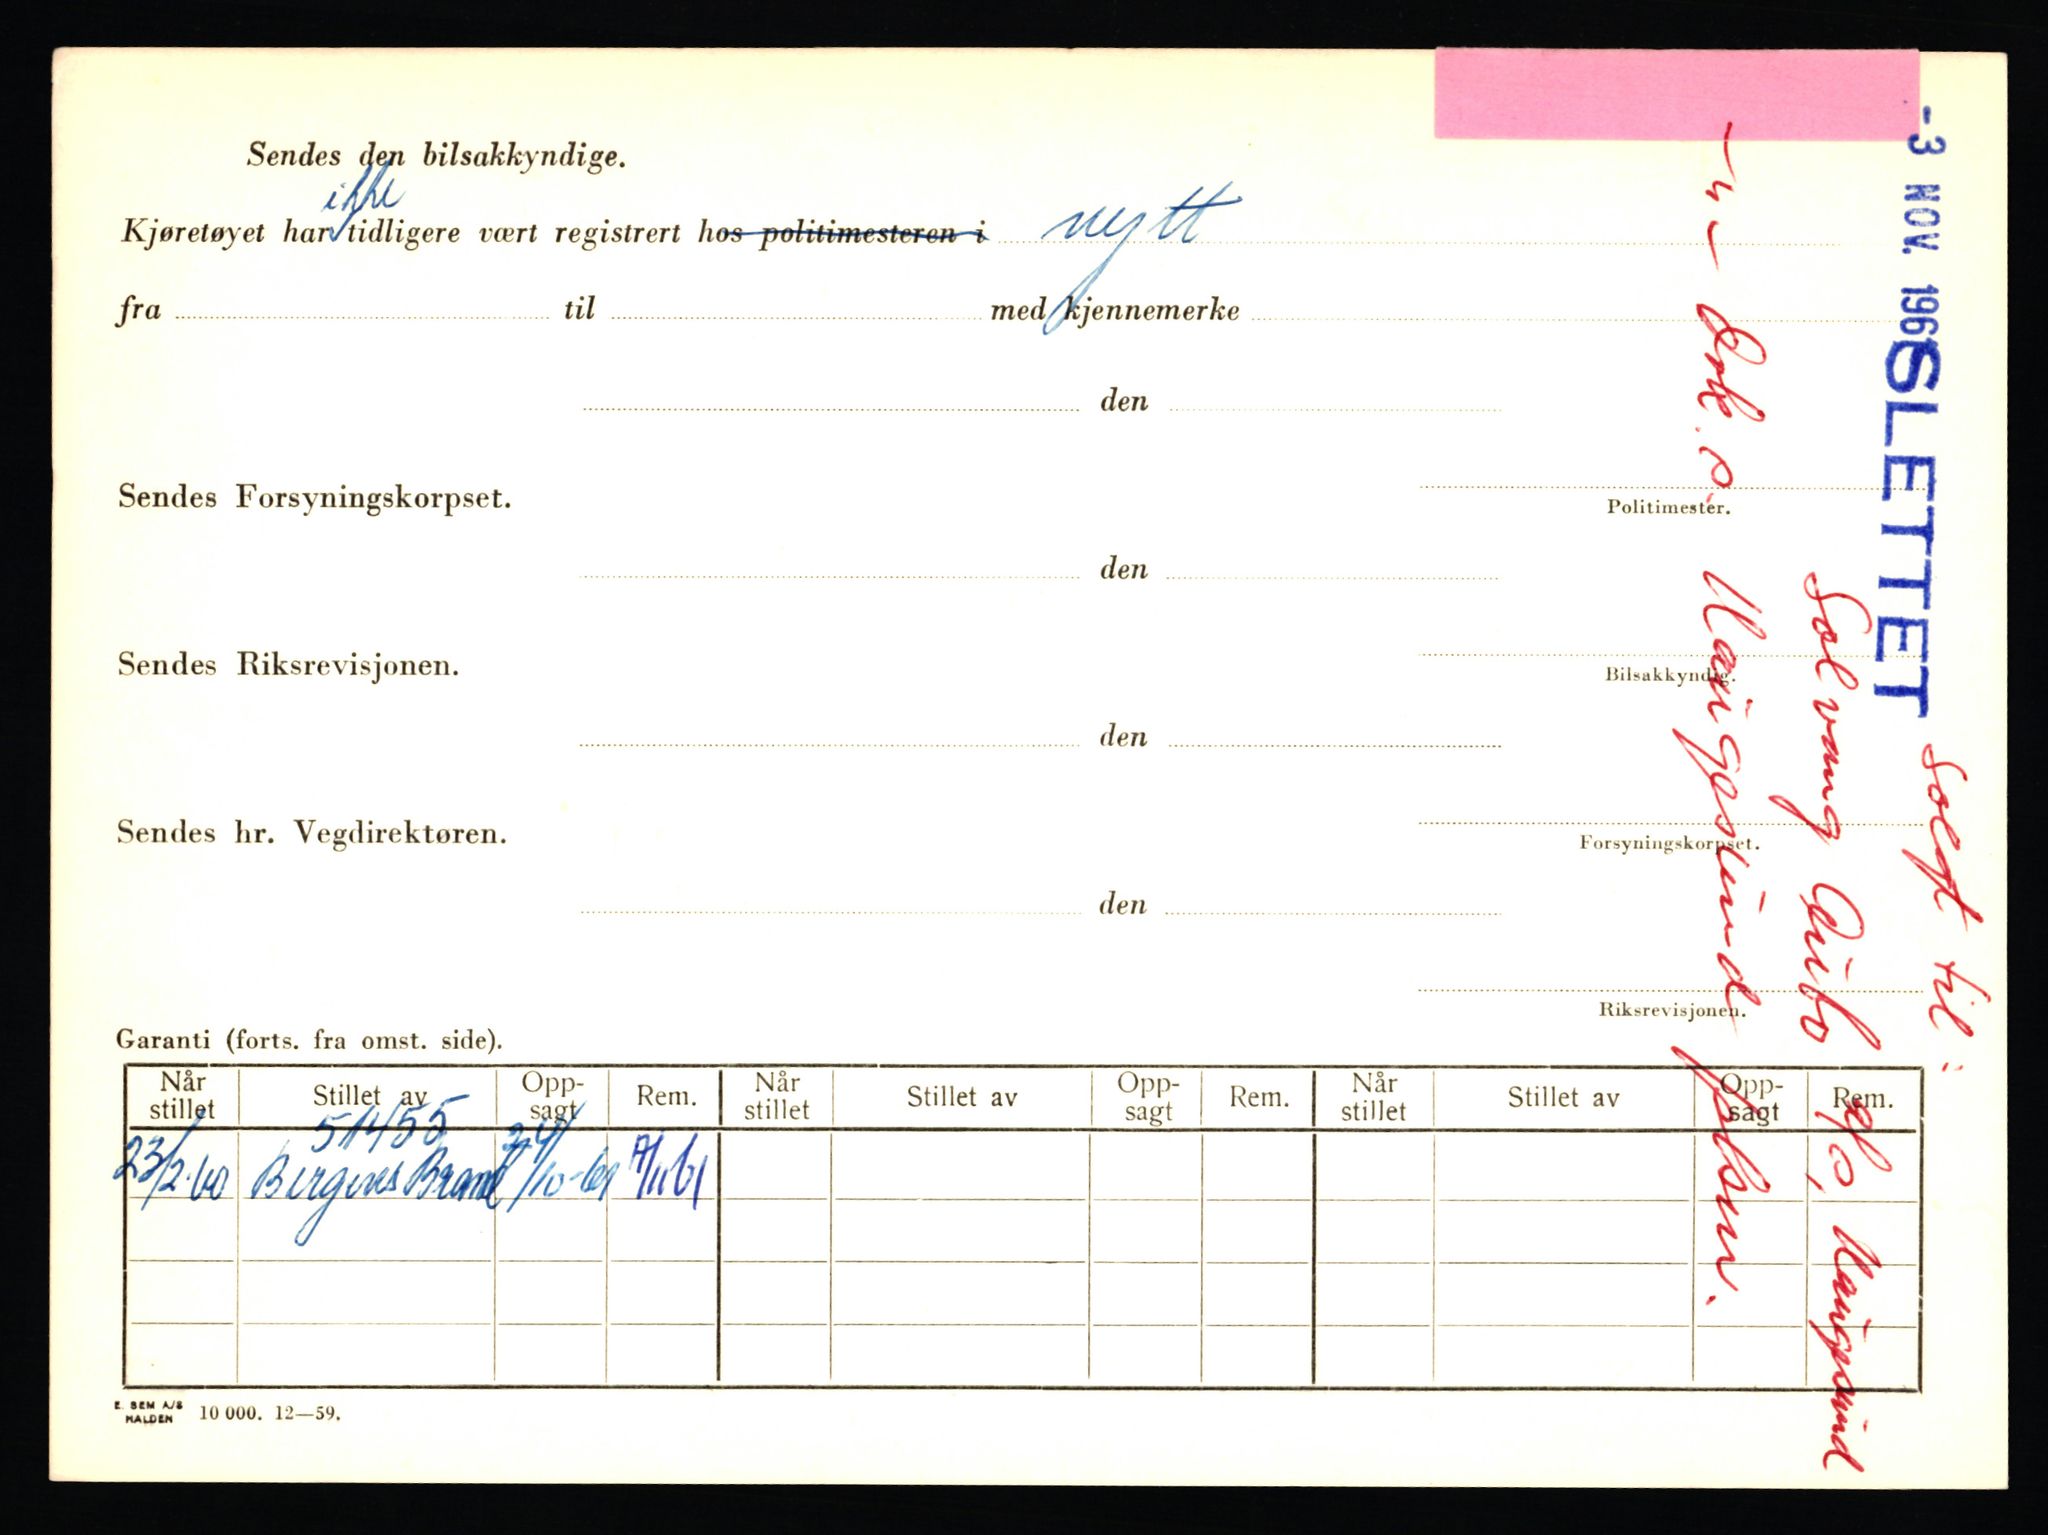 Sendes den bilsakkyndige.
ikke
Kjøretøyet har tidligere vært registrert hos politimesteren i nytt
fra til med kjennemerke
den
Sendes Forsyningskorpset.
Politimester.
den
Sendes Riksrevisjonen.
Bilsakkyndig.
den
Sendes hr. Vegdirektøren.
Forsyningskorpset.
den
Riksrevisjonen.
Garanti (forts. fra omst. side).
Når stillet Stillet av Opp-sagt Rem. Når stillet Stillet av Opp-sagt Rem. Når stillet Stillet av Opp-sagt Rem.
51455
23/2-60 Bergens Brand 24/10-61 7/11 61
E. SEM A/S
HALDEN 10 000. 12—59.
-3 NOV. 1961 SLETTET
Solgt til:
Solvang Auto A/S, Haugesund